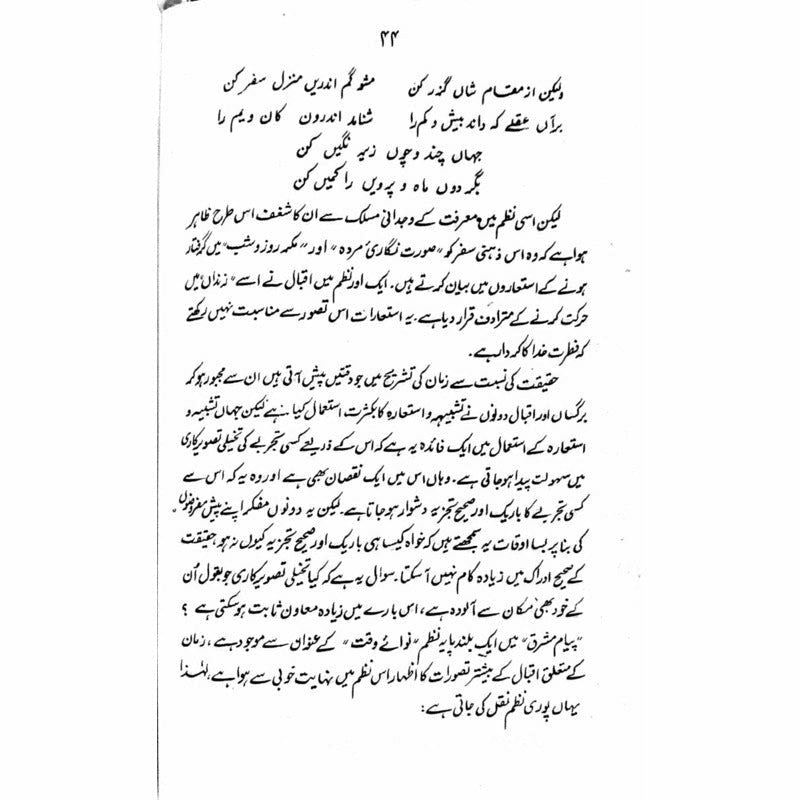 ۴۴
ولیکن از مقام شاں گزر کن مشو گم اندریں منزل سفر کن
براں عقلے کہ داند بیش و کم را شناسد اندرون کان و یم را
جہان چند و چوں زیر نگیں کن
بگردوں ماہ و پرویں را کمیں کن
لیکن اسی نظم میں معرفت کے وجدانی مسلک سے ان کا شغف اس طرح ظاہر
ہوا ہے کہ وہ اس ذہنی سفر کو "صورت نگاریٔ مردہ" اور "مکر روز و شب" میں گرفتار
ہونے کے استعاروں میں بیان کرتے ہیں۔ ایک اور نظم میں اقبال نے اسے "زنداں میں
حرکت کرنے کے مترادف قرار دیا ہے۔ یہ استعارات اس تصور سے مناسبت نہیں رکھتے
کہ فطرت خدا کا کردار ہے۔
حقیقت کی نسبت سے زمان کی تشریح میں جو دقتیں پیش آتی ہیں ان سے مجبور ہو کر
برگساں اور اقبال دونوں نے تشبیہہ و استعارہ کا بکثرت استعمال کیا ہے لیکن جہاں تشبیہ و
استعارہ کے استعمال میں ایک فائدہ یہ ہے کہ اس کے ذریعے کسی تجربے کی تخیلی تصویر کاری
میں سہولت پیدا ہو جاتی ہے۔ وہاں اس میں ایک نقصان بھی ہے اور وہ یہ کہ اس سے
کسی تجربے کا باریک اور صحیح تجزیہ دشوار ہو جاتا ہے۔ لیکن یہ دونوں مفکر اپنے پیش مفروضوں
کی بنا پر بسا اوقات یہ سمجھتے ہیں کہ خواہ کیسا ہی باریک اور صحیح تجزیہ کیوں نہ ہو حقیقت
کے صحیح ادراک میں زیادہ کام نہیں آ سکتا۔ سوال یہ ہے کہ کیا تخیلی تصویر کاری جو بقول اُن
کے خود بھی مکان سے آلودہ ہے، اس بارے میں زیادہ معاون ثابت ہو سکتی ہے ؟
"پیام مشرق" میں ایک بلند پایہ نظم "نوائے وقت" کے عنوان سے موجود ہے، زمان
کے متعلق اقبال کے بیشتر تصورات کا اظہار اس نظم میں نہایت خوبی سے ہوا ہے۔ لہٰذا
یہاں پوری نظم نقل کی جاتی ہے: